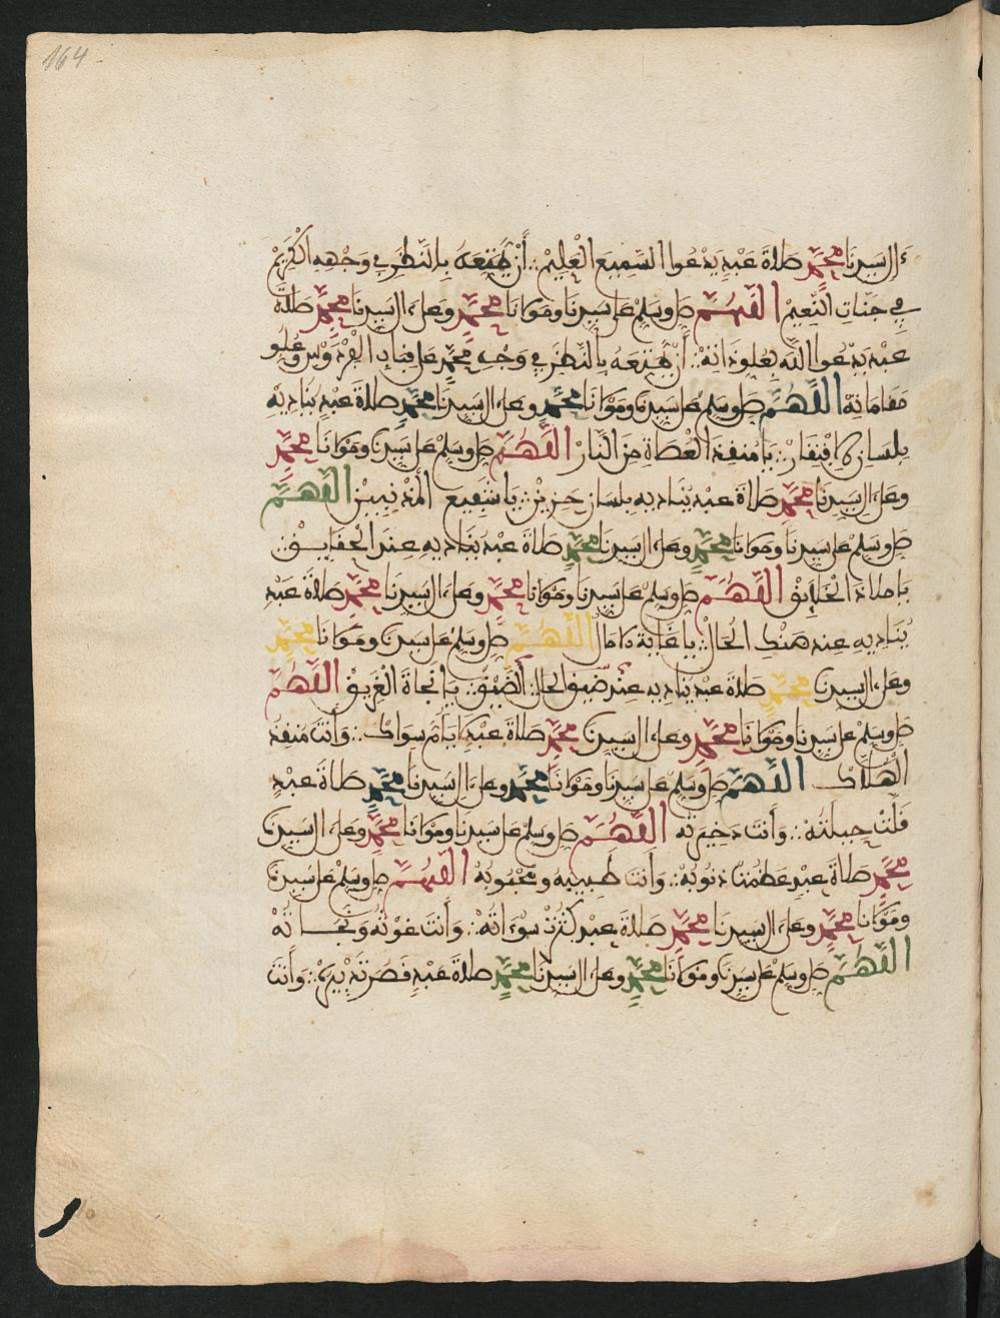 164
ءال سيدنا محمد صلاة عبد يدعوا السميع العليم أن يمتعه بالنظر في وجهه الكريم
في جنات النعيم اللهم صل وسلم على سيدنا ومولانا محمد وعلى ءال سيدنا محمد صلاة
عبد يدعوا الله بعلو ذاته أن يمتعه بالنظر في وجه محمد على الفردوس وعلو
مقاماته اللهم صل وسلم على سيدنا ومولانا محمد وعلى ءال سيدنا محمد صلاة عبد يناديه
بلسان الافتقار يا منقذ العصاة من النار اللهم صل وسلم على سيدنا ومولانا محمد
وعلى ءال سيدنا محمد صلاة عبد يناديه بلسان حزين يا شفيع المذنبين اللهم
صل وسلم على سيدنا ومولانا محمد وعلى ءال سيدنا محمد صلاة عبد يناديه عند الحقايق
يا ملاذ الخلايق اللهم صل وسلم على سيدنا ومولانا محمد وعلى ءال سيدنا محمد صلاة عبد
يناديه عند ضنك الحال يا غاية الامال اللهم صل وسلم على سيدنا ومولانا محمد
وعلى ءال سيدنا محمد صلاة عبد يناديه عند ضيق الحال الضيق يا نجاة الغريق اللهم
صل وسلم على سيدنا ومولانا محمد وعلى ءال سيدنا محمد صلاة عبد سواك وأنت منقذ
الهلاك اللهم صل وسلم على سيدنا ومولانا محمد وعلى ءال سيدنا محمد صلاة عبد
قلت حيلته وأنت ذخيرته اللهم صل وسلم على سيدنا ومولانا محمد وعلى ءال سيدنا
محمد صلاة عبد عظمت ذنوبه وأنت طبيبه ومحبوبه اللهم صل وسلم على سيدنا
ومولانا محمد وعلى ءال سيدنا محمد صلاة عبد كثرت سوءاته وأنت غوثه ونجاته
اللهم صل وسلم على سيدنا ومولانا محمد وعلى ءال سيدنا محمد صلاة عبد قصر تدبيره وأنت